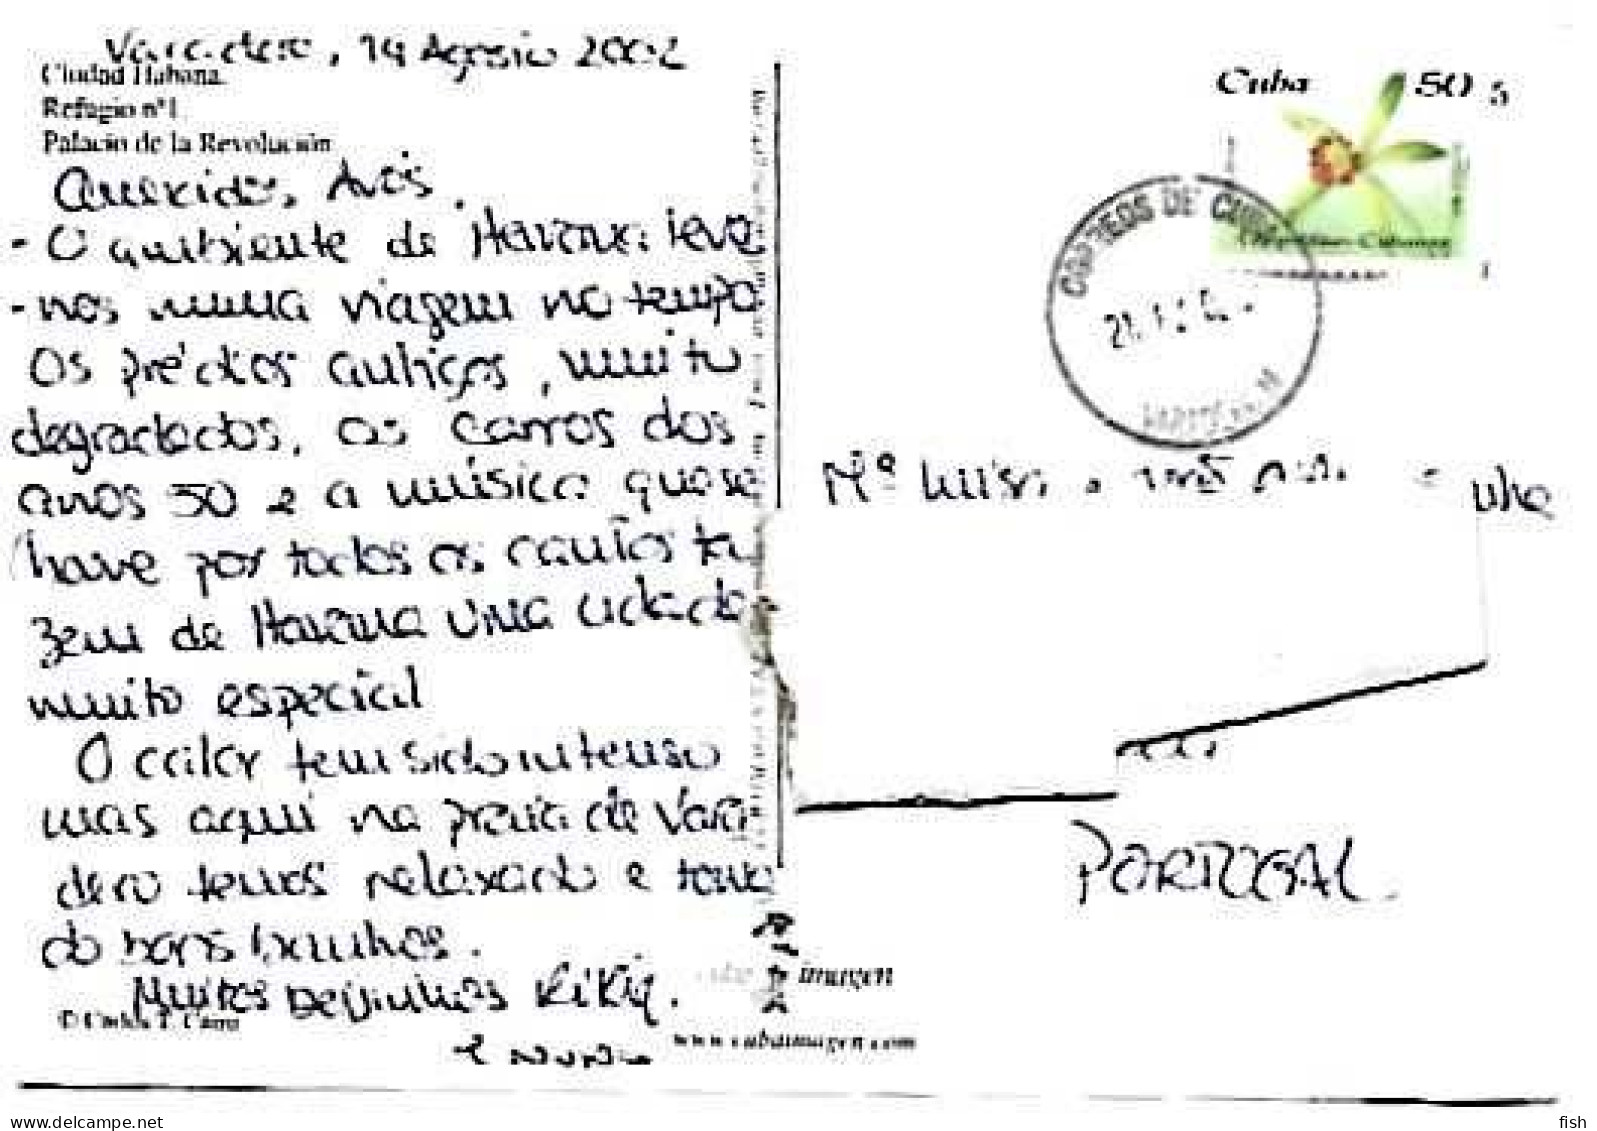 Varadero, 14 Agosto 2002
Ciudad Habana.
Refugio nº1.
Palacio de la Revolución
Queridos Avós,
- O ambiente de Havana leva
- nos numa viagem no tempo
Os prédios antigos, muito
degradados, os carros dos
anos 50 e a música que se
houve por todos os cantos fa
zem de Havana uma cidade
muito especial
O calor tem sido intenso
mas aqui na praia de Vara
dero temos relaxado e toma
do bons banhos.
Muitos Beijinhos Kikie.
© Carlos T. Cairo
imagen
www.cubaimagen.com
Cuba 50
CORREOS DE CUBA
Mª Luisa
PORTUGAL
delcampe.net
fish